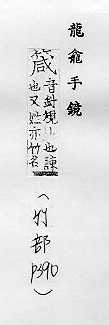 龍龕手鏡
箴
音針規也諫
也又姓亦竹名
(竹部
p390)